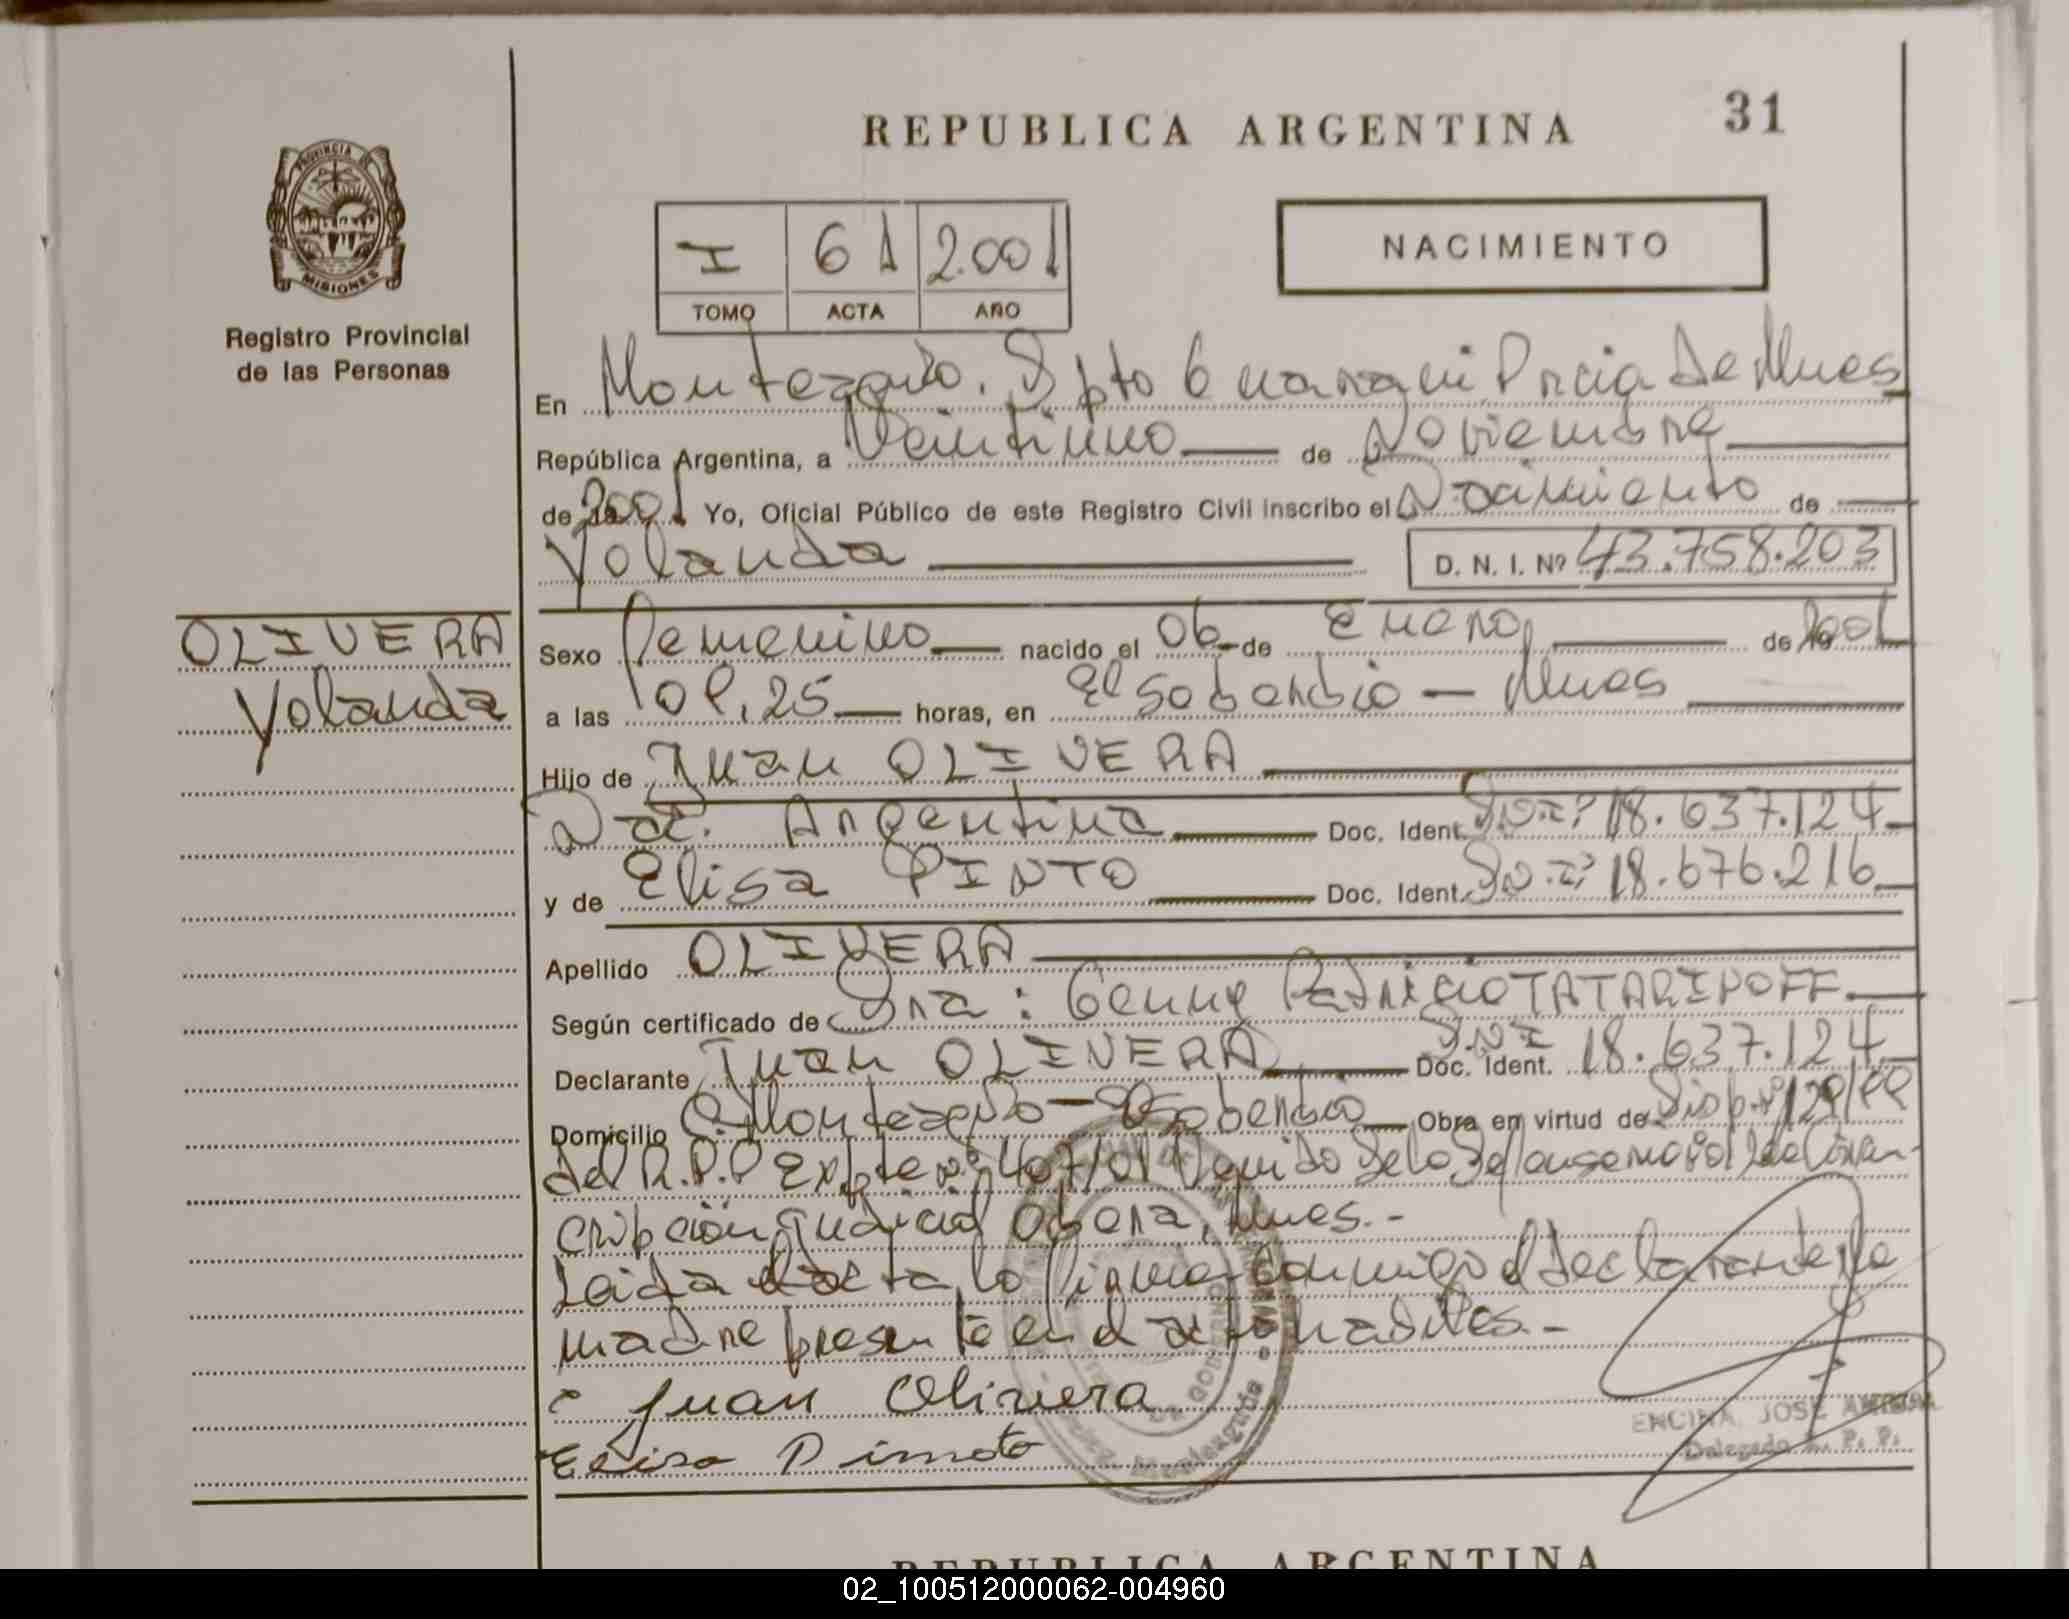 REPUBLICA ARGENTINA
31
PROVINCIA DE
MISIONES
Registro Provincial
de las Personas
I 61 2.001
TOMO ACTA AÑO
NACIMIENTO
En Monteagudo. Dpto Guarani Pncia de Mnes
República Argentina, a Veintiuno de Noviembre
de 2001 Yo, Oficial Público de este Registro Civil inscribo el Nacimiento de
Yolanda D. N. I. Nº 43.758.203
OLIVERA
Yolanda
Sexo Femenino nacido el 06 de Enero de 2001
a las horas, en El Soberbio - Mnes
Hijo de Juan OLIVERA
Nac. Argentina Doc. Ident. D.N.I: 18.637.124
y de Elisa PINTO Doc. Ident. D.N.I: 18.676.216
Apellido OLIVERA
Según certificado de Dra: TATARINOFF
Declarante Juan OLIVERA Doc. Ident. D.N.I 18.637.124
Domicilio Monteagudo - El Soberbio Obra en virtud de Disp. Nº
del R.P.P Expte nº 407/01 de la
cripción Judicial Obera, Mnes.-
Leida el acta, la firma conmigo el declarante la
madre presente en el acto
Juan Olivera
Elisa Pinto
ENCINA, JOSE
Delegado R. P. P.
REPUBLICA ARGENTINA
02_100512000062-004960